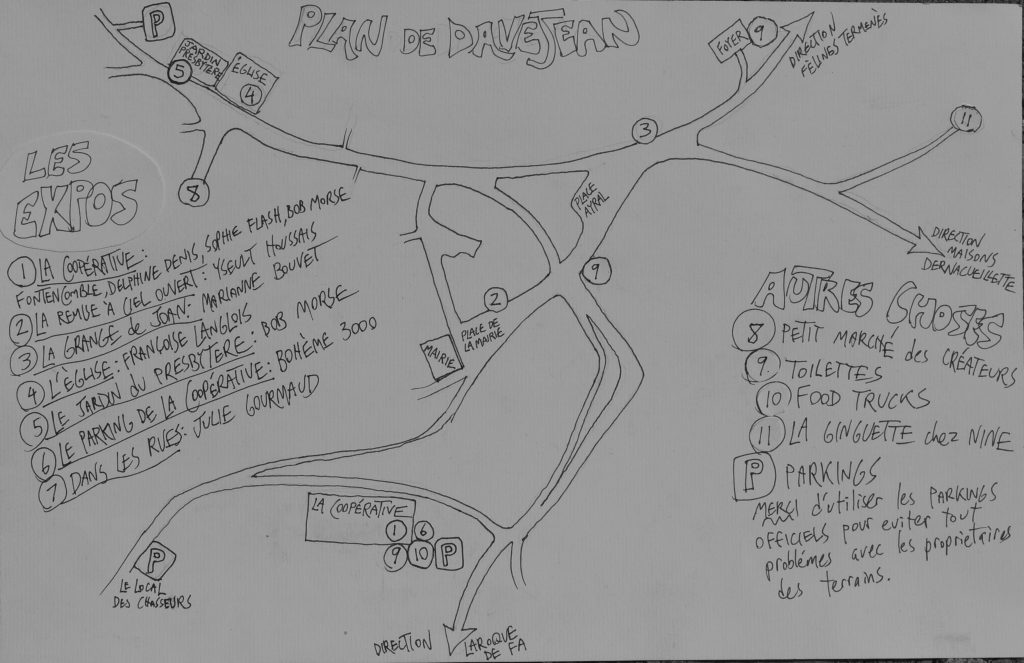 PLAN DE DAVEJEAN
P
JARDIN
PRESBYTÈRE
5
ÉGLISE
4
8
3
FOYER
9
DIRECTION
FÉLINES TERMENÈS
11
DIRECTION
MAISONS
DERNACUEILLETTE
PLACE
AYRAL
9
2
PLACE DE
LA MAIRIE
MAIRIE
LES
EXPOS
1 LA COOPÉRATIVE:
FONTENCOMBLE, DELPHINE DENIS, SOPHIE FLASH, BOB MORSE
2 LA REMISE À CIEL OUVERT: YSEULT HOUSSAIS
3 LA GRANGE de JOAN: MARIANNE BOUVET
4 L'ÉGLISE: FRANÇOISE LANGLOIS
5 LE JARDIN DU PRESBYTÈRE: BOB MORSE
6 LE PARKING DE LA COOPÉRATIVE: BOHÈME 3000
7 DANS LES RUES: JULIE GOURMAUD
AUTRES CHOSES
8 PETIT MARCHÉ des CRÉATEURS
9 TOILETTES
10 FOOD TRUCKS
11 LA GINGUETTE chez NINE
P PARKINGS
MERCI d'utiliser les PARKINGS
OFFICIELS pour eviter tout
problémes avec les proprietaires
des terrains.
LA COOPÉRATIVE
1 6
9 10 P
P
LE LOCAL
DES CHASSEURS
DIRECTION LAROQUE
DE FA